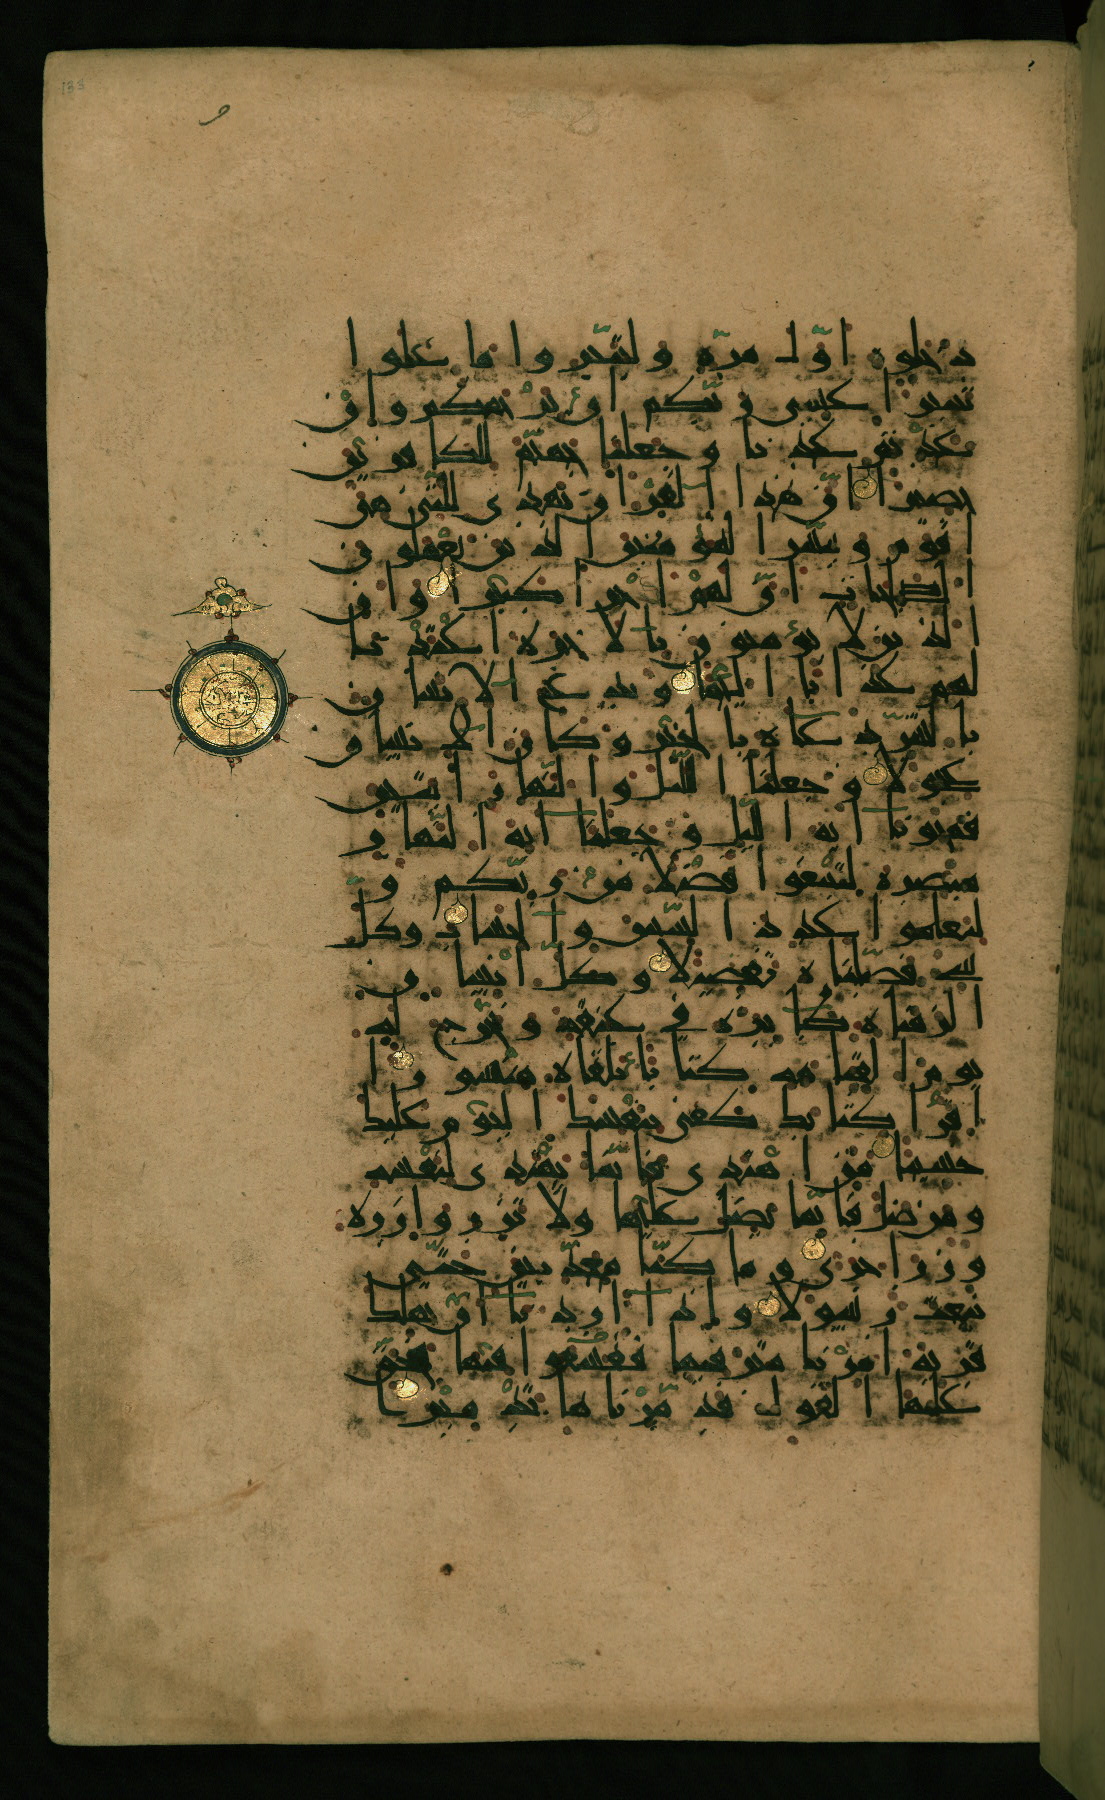 دخلوه اول مرة وليتبروا ما علوا
تتبيرا عسى ربكم ان يرحمكم وان
عدتم عدنا وجعلنا جهنم للكافرين
حصيرا ان هذا القران يهدي للتي هي
اقوم ويبشر المؤمنين الذين يعملون
الصالحات ان لهم اجرا كبيرا وان
الذين لا يؤمنون بالاخرة اعتدنا
لهم عذابا اليما ويدع الانسان
بالشر دعاه بالخير وكان الانسان
عجولا وجعلنا الليل والنهار ايتين
فمحونا اية الليل وجعلنا اية النهار
مبصرة لتبتغوا فضلا من ربكم و
لتعلموا عدد السنين والحساب وكل
شي فصلناه تفصيلا وكل انسان
الزمناه طائره في عنقه ونخرج له
يوم القيامة كتابا يلقاه منشورا
اقرا كتابك كفى بنفسك اليوم عليك
حسيبا من اهتدى فانما يهتدي لنفسه
ومن ضل فانما يضل عليها ولا تزر وازرة
وزر اخرى وما كنا معذبين حتى
نبعث رسولا واذا اردنا ان نهلك
قرية امرنا مترفيها ففسقوا فيها فحق
عليها القول فدمرناها تدميرا